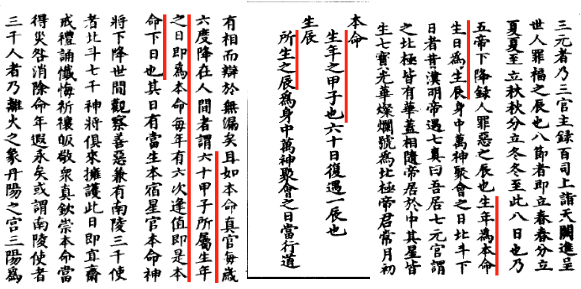 三元者乃三官主録百司上詣天闕進呈
世人罪福之辰也八節者即立春春分立
夏夏至立秋秋分立冬冬至此八日也乃
五帝下降録人罪惡之辰也生年為本命
生日為生辰身中萬神聚會之日北斗下
日者昔漢明帝遇七真曰吾居七元宮謂
之北極皆有華蓋相隨帝居於中其星皆
生七寳光華燦爛號為北極帝君常月初
本命
生年之甲子也六十日復遇一辰也
生辰
所生之辰為身中萬神聚會之日當行道
有相而辯於無漏矣且如本命真官每歲
六度降在人間者謂六十甲子所屬生年
之日即為本命每年有六次逢值即是本
命下日也其日有當生本宿星官本命神
將下降世間觀察善惡兼有南陵三千使
者北斗七千神將俱來擁護此日即宜齋
戒禮誦懺悔祈禳皈敬衆真欽崇本命當
得災咎消除命年假永矣或謂南陵使者
三千人者乃離火之象丹陽之宮三陽為